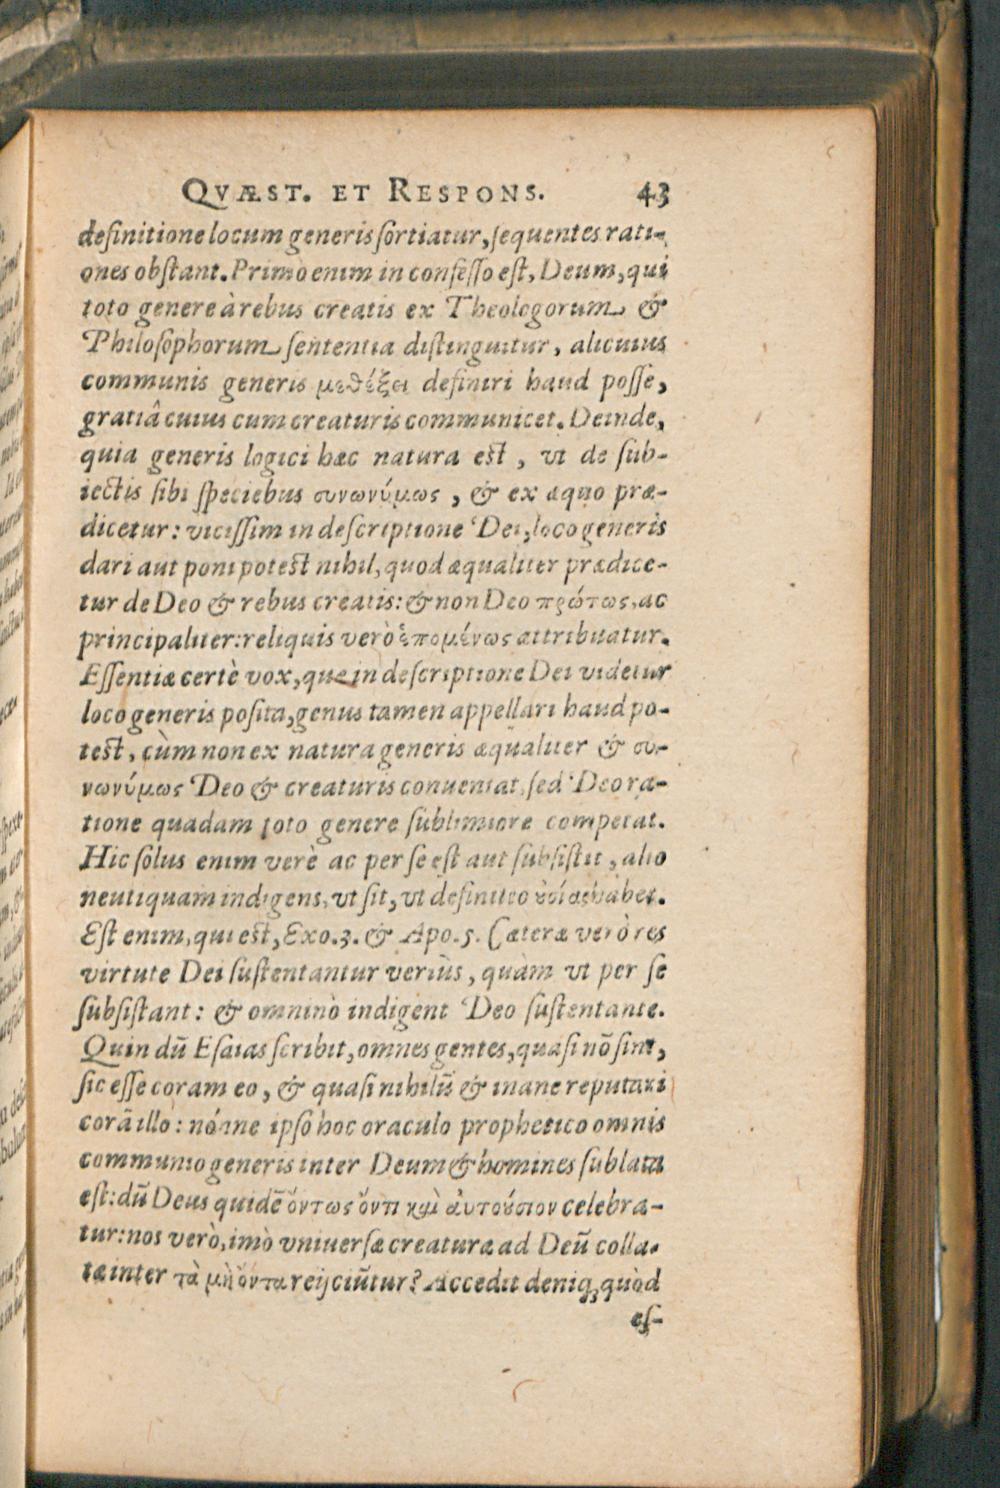 QVÆST. ET RESPONS. 43
definitione locum generis sortiatur, sequentes rati-
ones obstant. Primò enim in confesso est, Deum, qui
toto genere à rebus creatis ex Theologorum &
Philosophorum sententia distinguitur, alicuius
communis generis μεθέξει definiri haud posse,
gratiâ cuius cum creaturis communicet. Deinde,
quia generis logici hæc natura est, vt de sub-
iectis sibi speciebus συνωνύμως, & ex æquo præ-
dicetur: vicissim in descriptione Dei, loco generis
dari aut poni potest nihil, quod æqualiter prædice-
tur de Deo & rebus creatis: & non Deo πρώτως, ac
principaliter: reliquis verò ἑπομένως attribuatur.
Essentiæ certè vox, quæ in descriptione Dei videtur
loco generis posita, genus tamen appellari haud po-
test, cùm non ex natura generis æqualiter & συ-
νωνύμως Deo & creaturis conueniat, sed Deo ra-
tione quadam toto genere sublimiore competat.
Hic solus enim verè ac per se est aut subsistit, alio
neutiquam indigens, vt sit, vt definitio ὐσίας habet.
Est enim, qui est, Exo.3. & Apo.5. Cæteræ verò res
virtute Dei sustentantur veriùs, quàm vt per se
subsistant: & omninò indigent Deo sustentante.
Quin dū Esaias scribit, omnes gentes, quasi nō sint,
sic esse coram eo, & quasi nihilū & inane reputari
corā illo: nónne ipso hoc oraculo prophetico omnis
communio generis inter Deum & homines sublata
est: dū Deus quidē ὄντως ὄντι καὶ ἀυτούσιον celebra-
tur: nos verò, imò vniuersæ creaturæ ad Deū colla-
tæ inter τὰ μὴ ὄντα reijciūtur? Accedit deniq, quòd
es-